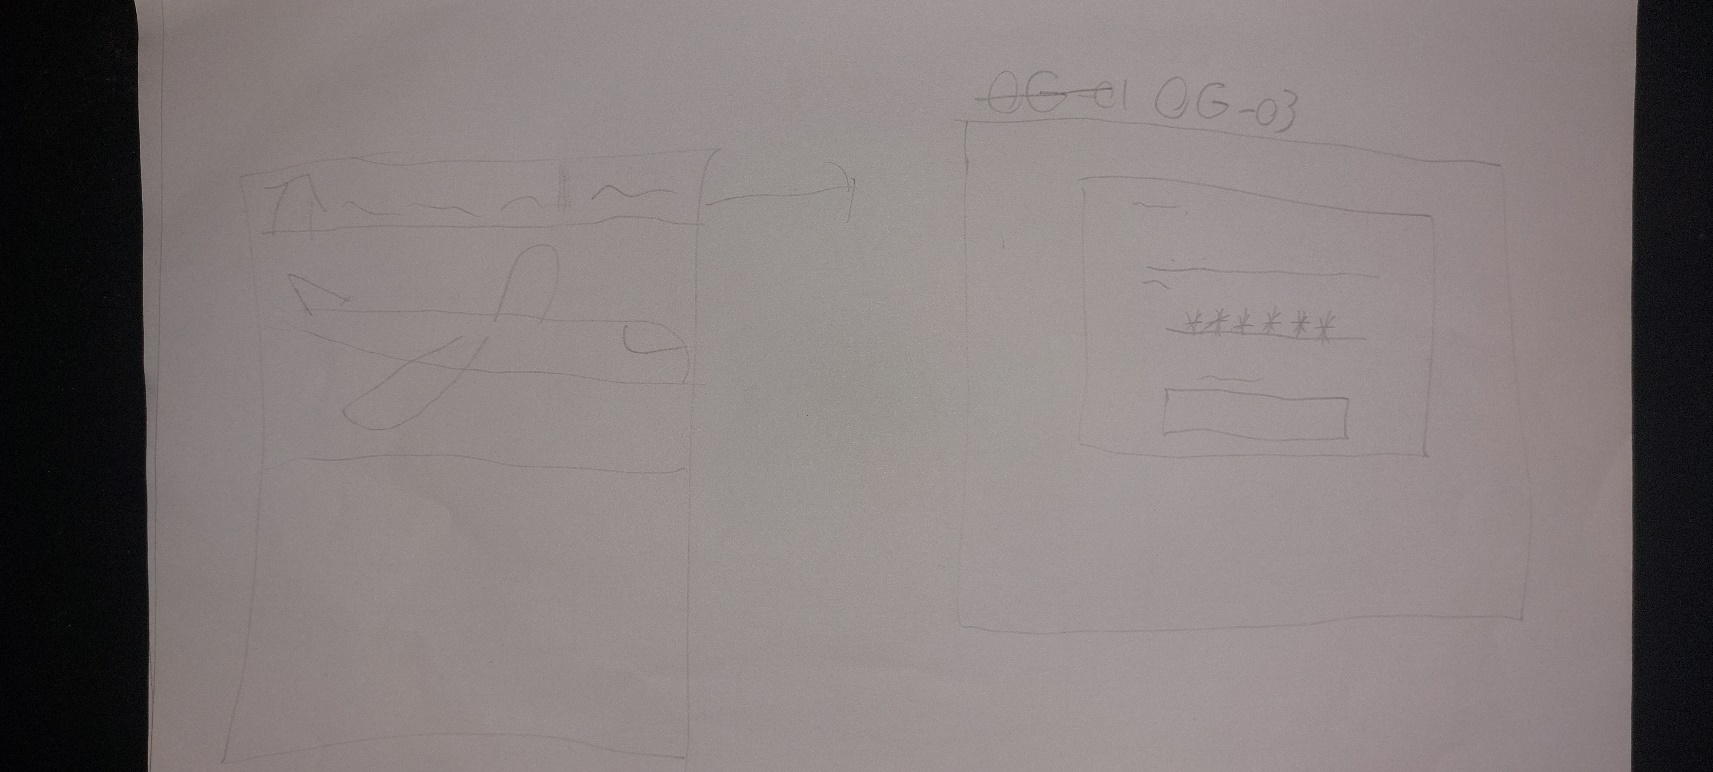 OG-01 OG-03
******